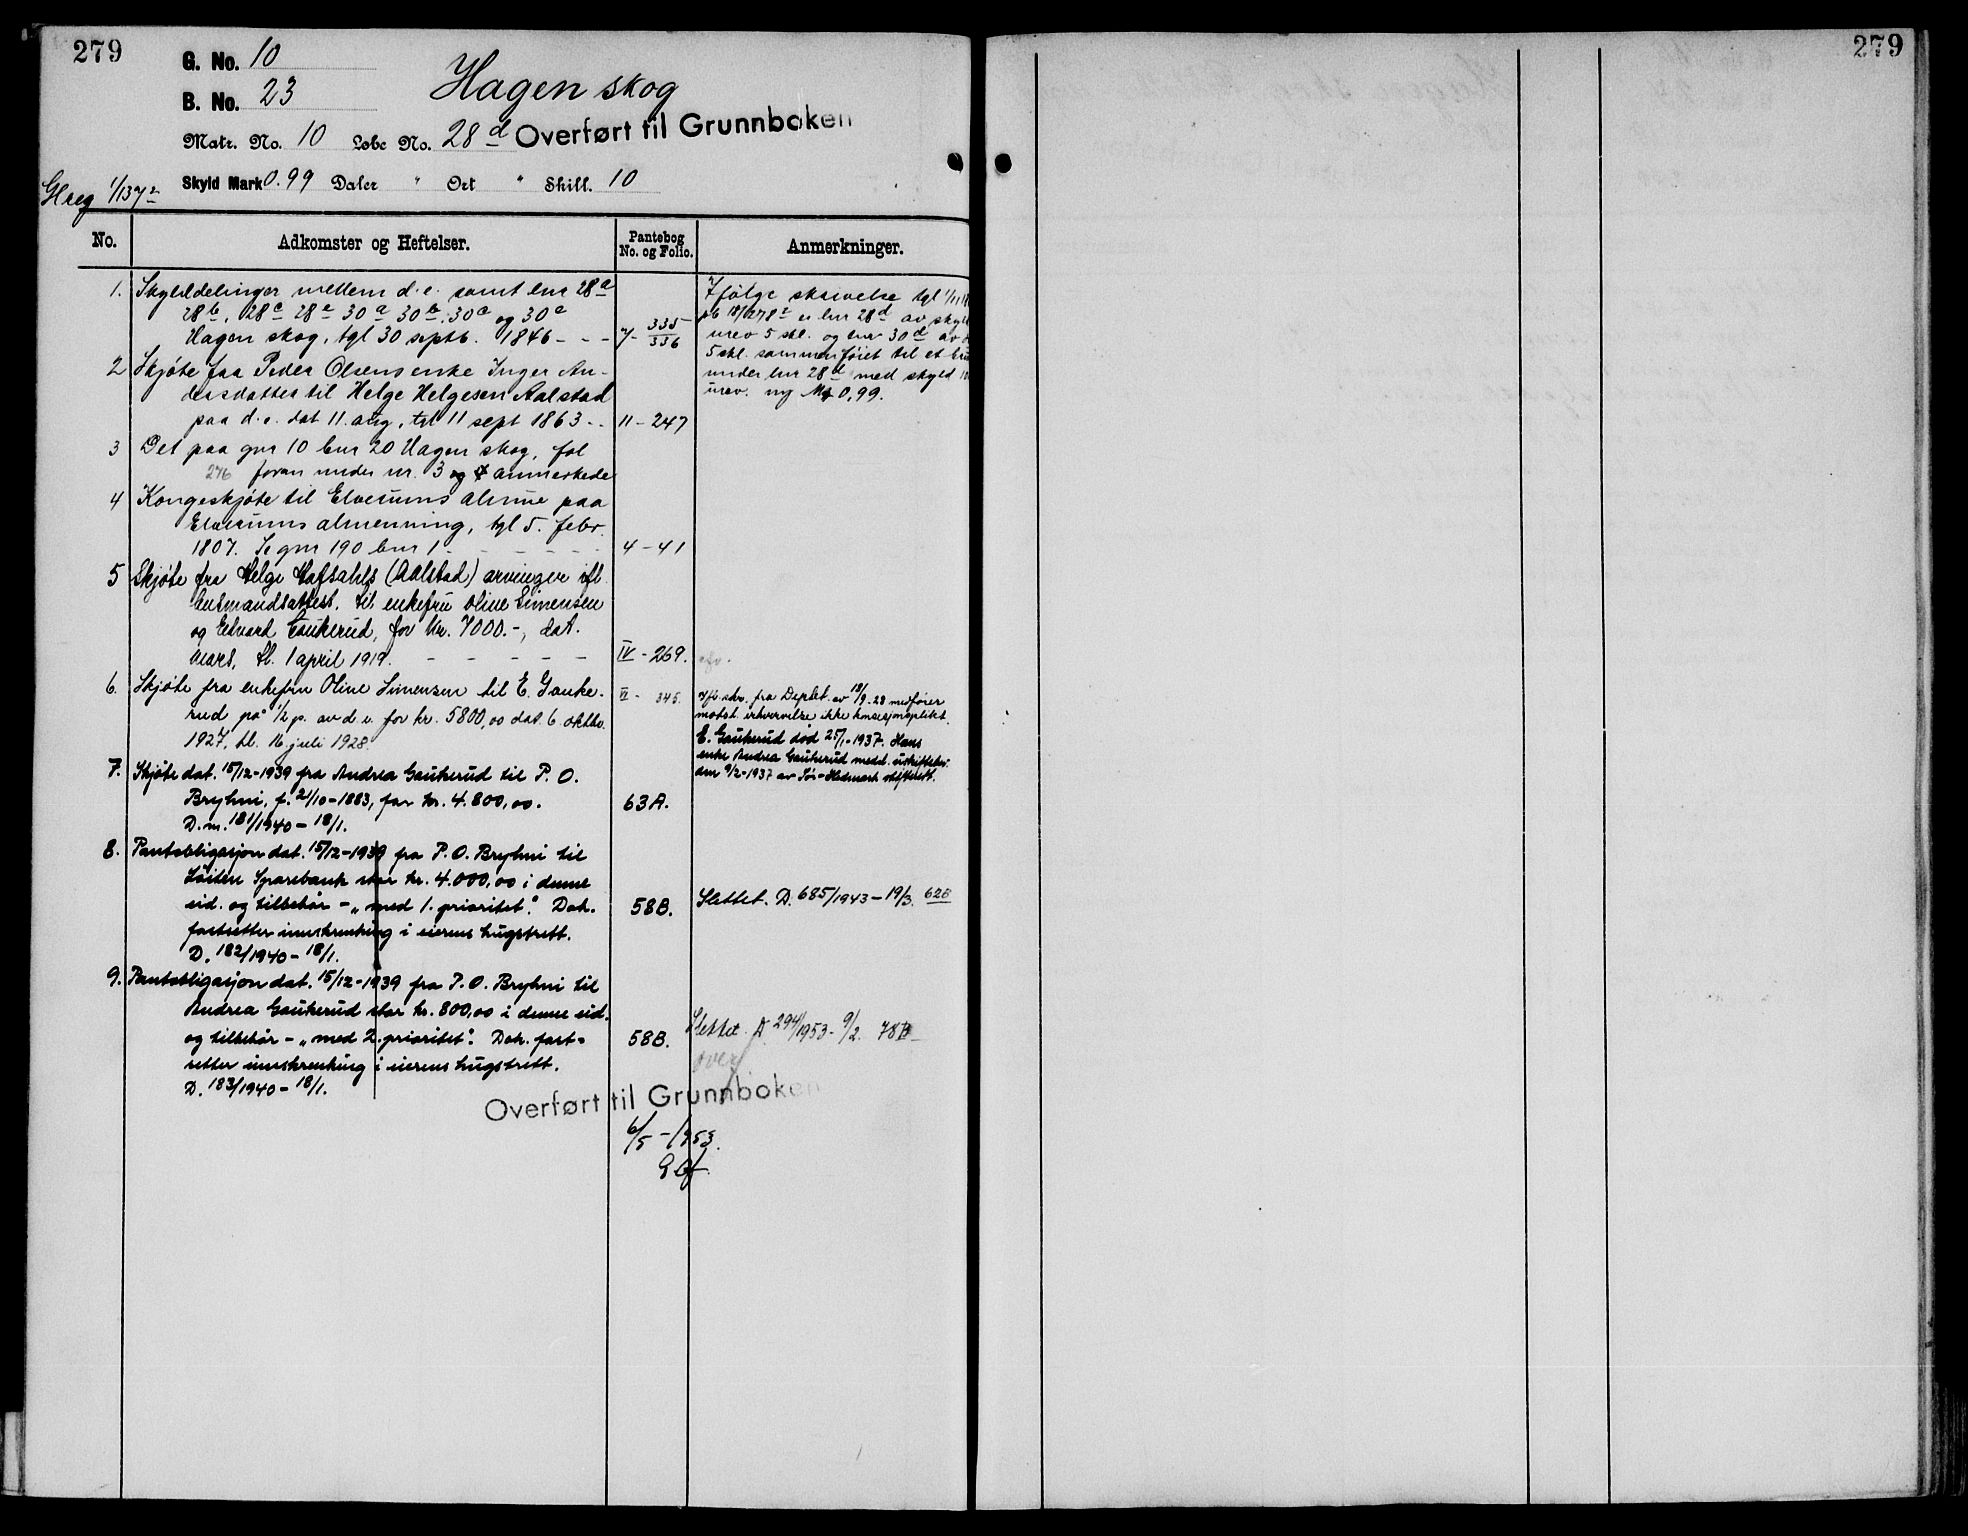 279
G. No. 10
B. No. 23
Hagen skog
Overført til Grunnboken
Matr. No. 10 Lobe No. 28 d
Skyld Mark 0.99 Daler " Ort " Skill. 10
No.
Adkomster og Heftelser.
Pantebog No. og Folio.
Anmerkninger.
1. Skylddelinger mellem d.e. samt lnr 28a
28b, 28c 28e 30a 30b 30c og 30e
Hagen skog, tgl 30 septb. 1846 - - - 7- 335/336
2 Skjøte fra Peder Olsens enke Inger An-
dersdatter til Helge Helgesen Aalstad
paa d.e. dat 11. aug, tgl 11 sept 1863 - - 11 - 247
3 Det paa gnr 10 bnr 20 Hagen skog, fol
276 foran under nr. 3 og 4 anmerkede
4 Kongeskjøte til Elverums almue paa
Elverums almenning, tgl 5. febr.
1807. Se gnr 190 bnr 1 - - - - - - 4 - 41
Ifølge skrivelse tgl
er lnr 28d av skyld
urev 5 skl. og lnr 30d av
5 skl. sammenføiet til et bru
under lnr 28d med skyld
urev. ny Mk 0,99.
5 Skjøte fra Helge Hafsahls (Aalstad) arvinger ifl.
lensmandsattest, til enkefru Oline Simensen
og Edvard Gaukerud, for kr. 7000.-, dat.
mars, tl. 1 april 1919. - - - - - IV - 269.
6. Skjøte fra enkefru Oline Simensen til E. Gauke- VI - 345.
rud på 1/2 p. av d.e. for kr. 5800,00 dat. 6. oktbr.
1927, tl. 16 juli 1928.
Ifl. skr. fra Deplet. av 18/9-28 medfører
motst. erhvervelse ikke konsesjonsplikt.
E. Gaukerud død 25/1-1937. Hans
enke Andrea Gaukerud medd. uskiftebev.
den 9/2-1937 av Sør-Hedmark skifterett.
7. Skjøte dat. 15/12-1939 fra Andrea Gaukerud til P. O.
Bryhni, f. 21/10-1883, for kr. 4.800,00. 63A.
D.nr. 181/1940 - 18/1.
8. Pantobligasjon dat. 15/12-1939 fra P. O. Bryhni til
Løiten Sparebank stor kr. 4.000,00 i denne
eid. og tilbehør - „med 1. prioritet". Dok. 58B. Slettet. D. 685/1943 - 19/3. 628
fastsetter innskrenking i eierens hugstrett.
D. 182/1940 - 18/1.
9. Pantobligasjon dat. 15/12-1939 fra P. O. Bryhni til
Andrea Gaukerud stor kr. 800,00 i denne eid.
og tilbehør - „med 2. prioritet". Dok. fast- 58B. Slettet D. 294/1953 - 9/2. 78B
setter innskrenking i eierens hugstrett.
over
D. 183/1940 - 18/1.
Overført til Grunnboken
6/5 - 1953.
279